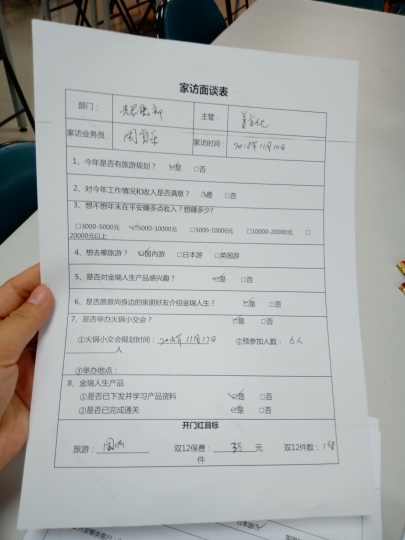 家访面谈表
部门： 主管：
家访业务员： 家访时间： 2018年11月10日.
1、今年是否有旅游规划？ ☑是 □否
2、对今年工作情况和收入是否满意？ ☑是 □否
3、想不想年末在平安赚多点收入？想赚多少?
□3000-5000元 ☑5000-10000元 □5000-10000元 □10000-20000元 □
20000元以上
4、想去哪旅游？ ☑国内游 □日本游 □英国游
5、是否对金瑞人生产品感兴趣？ ☑是 □否
6、是否愿意向身边的亲朋好友介绍金瑞人生？ ☑是 □否
7、是否举办火锅小交会？ ☑是 □否
①火锅小交会规划时间：2018年11月17日 ②预参加人数： 6人
人
③举办地点：
8、金瑞人生产品
①是否已下发并学习产品资料 ☑是 □否
②是否已完成通关 ☑是 □否
开门红目标
旅游： 国内 双12保费： 元 双12件数：
件